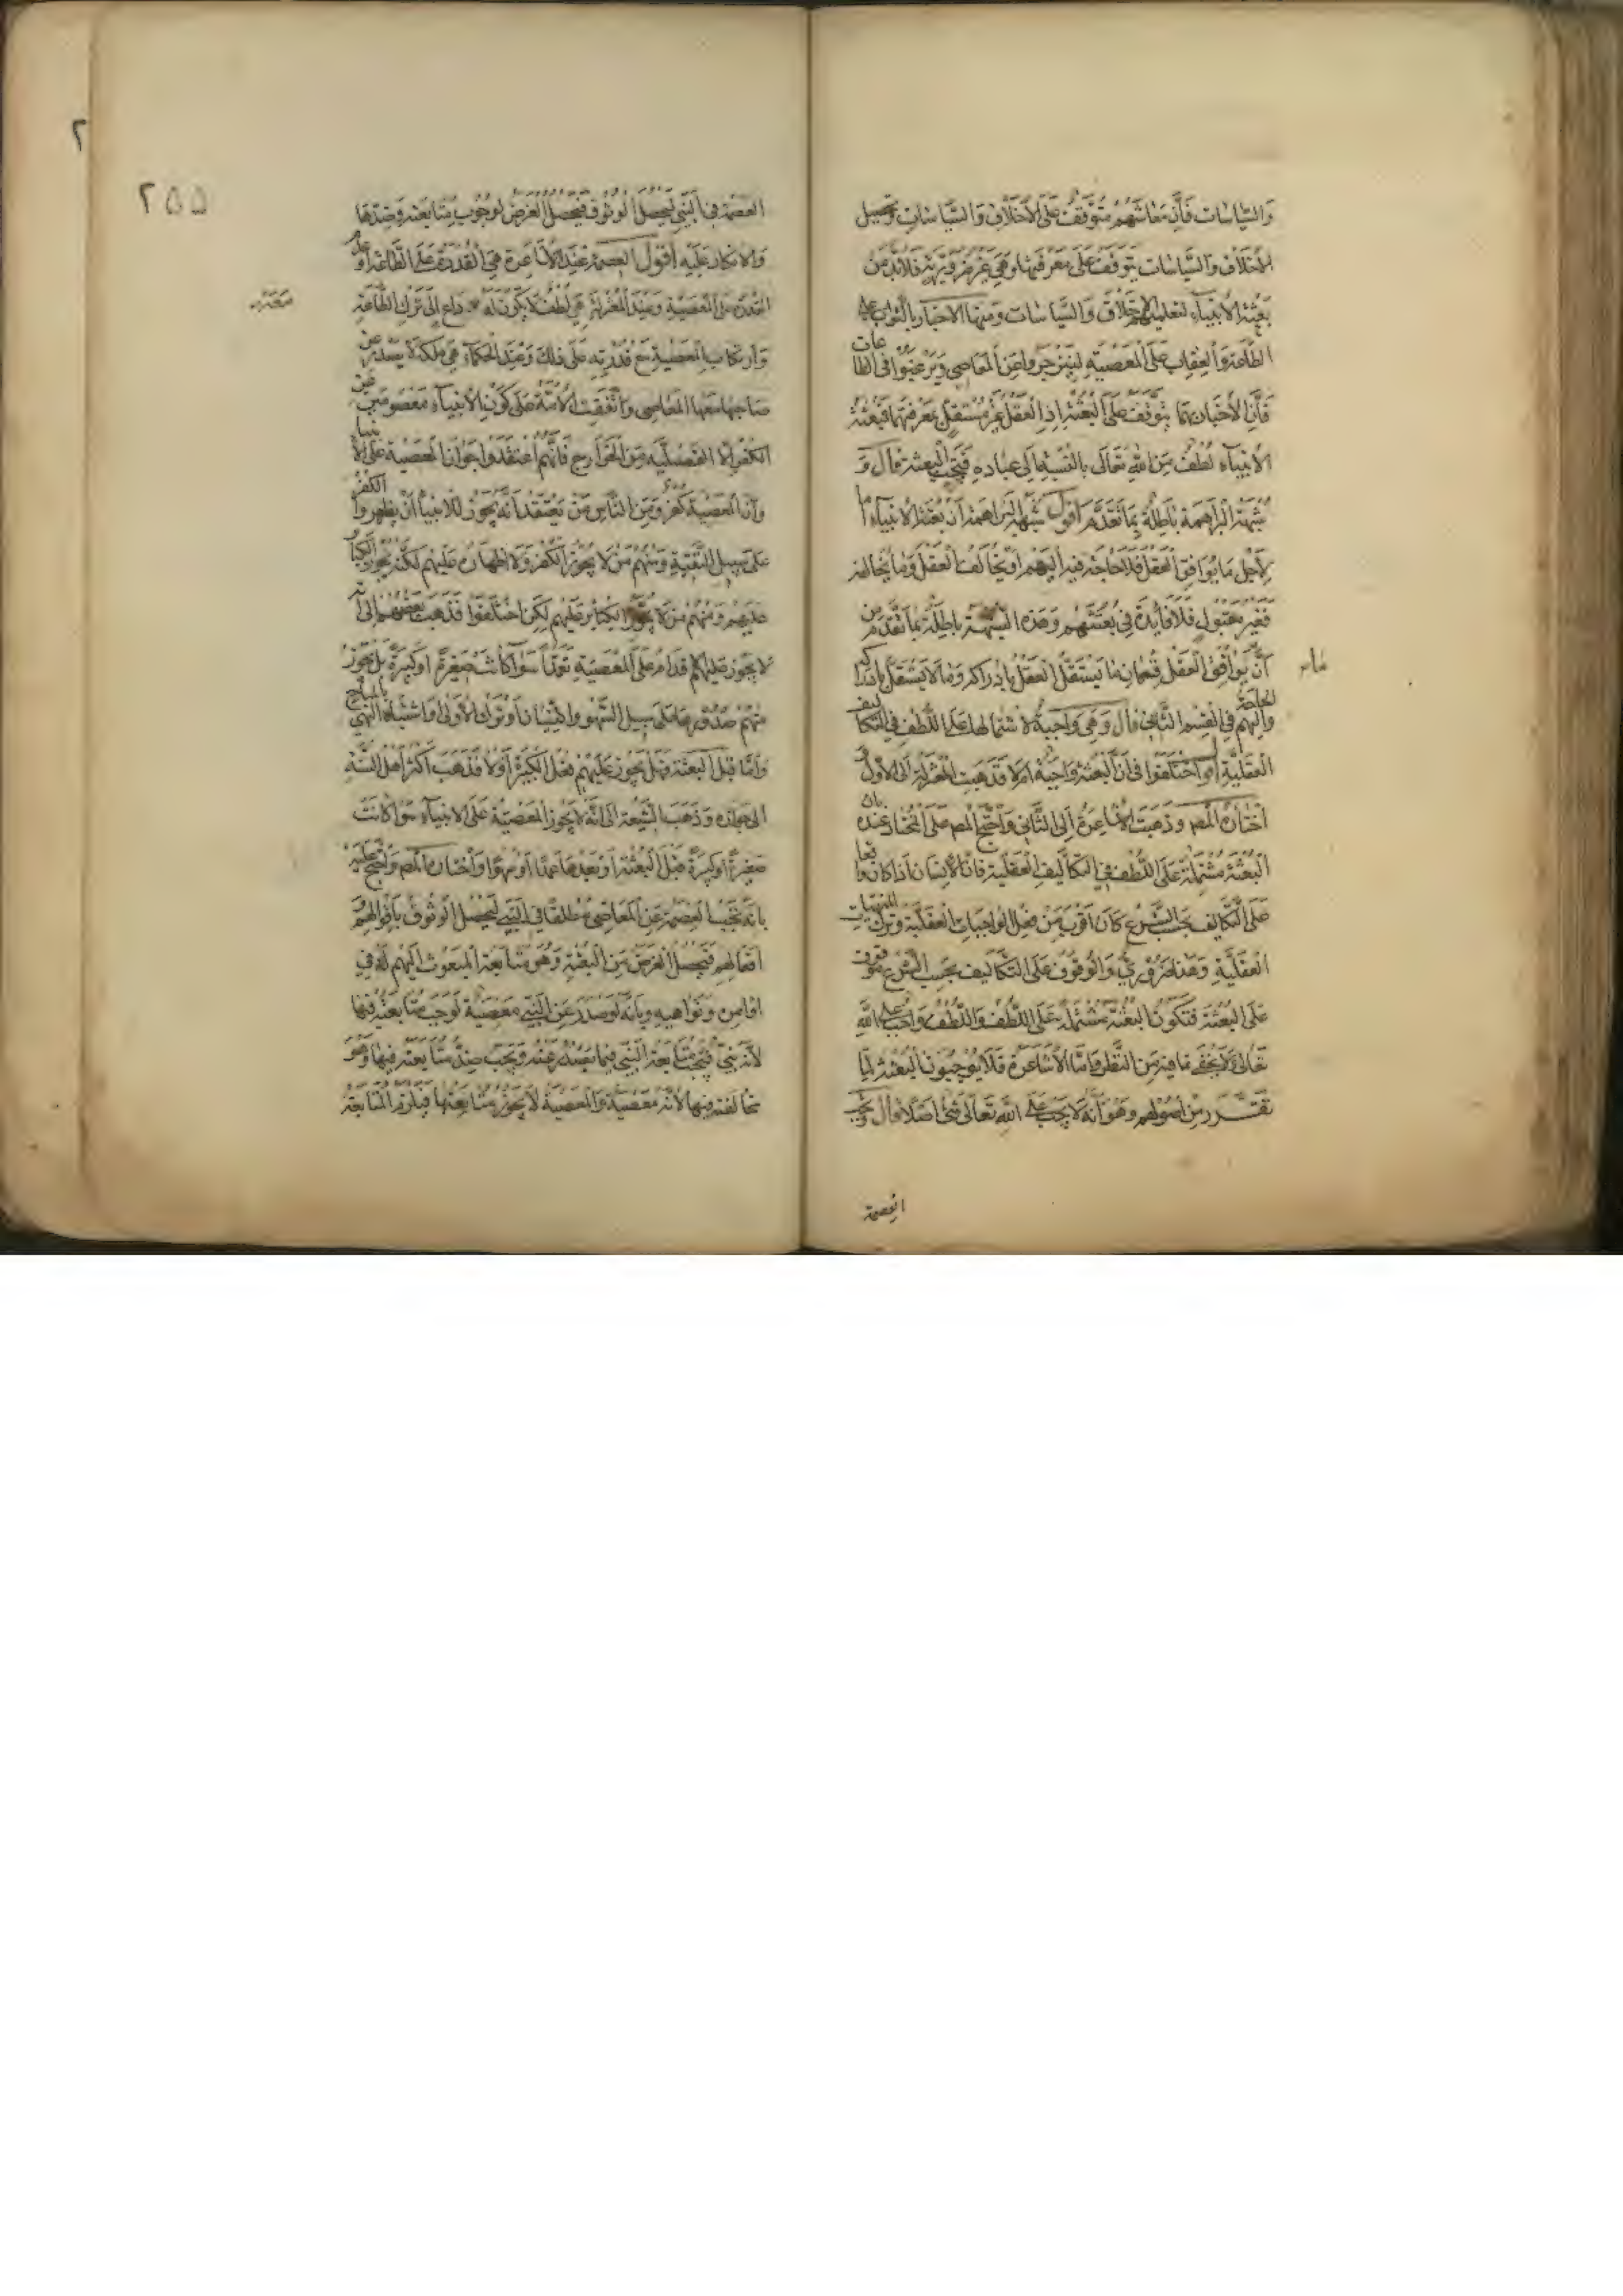 والسياسات فان معاشهم متوقف على الاخلاق والسياسات وتحصيل
الاخلاق والسياسات يتوقف على معرفتها وهي غير ضرورية فلابد من
بعثة الانبياء لتعليم الاخلاق والسياسات ومنها الاخبار بالثواب على
الطاعة والعقاب على المعصية لينزجروا عن المعاصي ويرغبوا في الطاعات
فان الاخبار بهما يتوقف على البعثة اذ العقل غير مستقل بمعرفتهما فبعثة
الانبياء لطف من الله تعالى بالنسبة الى عباده فتجب البعثة قال و
شبهة البراهمة باطلة بما تقدم اقول شبهة البراهمة ان بعثة الانبياء اما
لاجل ما يوافق العقل فلا حاجة فيه اليهم او يخالف العقل وما يخالفه
فغير مقبول فلا فايدة في بعثتهم وهذه الشبهة باطلة بما تقدم من
ان يوافق العقل قسمان ما يستقل العقل بادراكه وما لا يستقل بادراكه
والحاجة اليهم في القسم الثاني قال وهي واجبة لاشتمالها على اللطف في التكاليف
العقلية اقول اختلفوا في ان البعثة واجبة ام لا فذهبت المعتزلة الى الاول و
اختاره المص وذهبت الاشاعرة الى الثاني واحتج المص على المختار عنده بان
البعثة مشتملة على اللطف في التكاليف العقلية فان الانسان اذا كان واقفا
على التكاليف بحسب الشرع كان اقرب من فعل الواجبات العقلية وترك المنهيات
العقلية وهذا ضروري والوقوف على التكاليف بحسب الشرع موقوف
على البعثة فتكون البعثة مشتملة على اللطف واللطف واجب على الله
تعالى ولا يخفى ما فيه من النظر واما الاشاعرة فلا يوجبون البعثة لما
تقرر من اصولهم وهو انه لا يجب على الله تعالى شئ اصلا قال ويجب
العصمة
٢٥٥
العصمة في النبي ليحصل الوثوق فيحصل الغرض لوجوب متابعته وضدها
والانكار عليه اقول العصمة عند الاشاعرة هي القدرة على الطاعة وعدم
القدرة على المعصية وعند المعتزلة هي لطف لا يكون له مع داع الى ترك الطاعة
وارتكاب المعصية مع قدرته على ذلك وعند الحكماء هي ملكة لا يصدر عن
صاحبها معها المعاصي واتفقت الامة على كون الانبياء معصومين عن
الكفر الا الفضيلية من الخوارج فانهم اعتقدوا جواز المعصية على الانبياء
وان المعصية كفر ومن الناس من يعتقد انه يجوز للانبياء ان يظهروا الكفر
على سبيل التقية ومنهم من لا يجوز الكفر ولا اظهاره عليهم لكنه يجوز الكبائر
عليهم ومنهم من لا يجوز الكبائر عليهم لكن اختلفوا فذهب بعضهم الى انه
لا يجوز عليهم الاقدام على المعصية تعمدا سواء كانت صغيرة او كبيرة بل يجوز
منهم صدورها على سبيل السهو والنسيان او ترك الاولى او اشتباه المنهي بالمباح
واما قبل البعثة فهل يجوز عليهم فعل الكبيرة او لا فذهب اكثر اهل السنة
الى جوازه وذهب الشيعة الى انه لا يجوز المعصية على الانبياء سواء كانت
صغيرة او كبيرة قبل البعثة او بعدها عمدا او سهوا واختاره المص واحتج عليه
بانه تجب العصمة عن المعاصي مطلقا في النبي ليحصل الوثوق باقوالهم و
افعالهم فيحصل الغرض من البعثة وهو متابعة المبعوث اليهم له في
اوامره ونواهيه وبانه لو صدر عن النبي معصية لوجب متابعته فيها
لانه نبي فيجب متابعة النبي فيما يصدر عنه ويجب ضد متابعته فيها وهو
مخالفته فيها لانه معصية والمعصية لا يجوز متابعتها فيلزم المتابعة